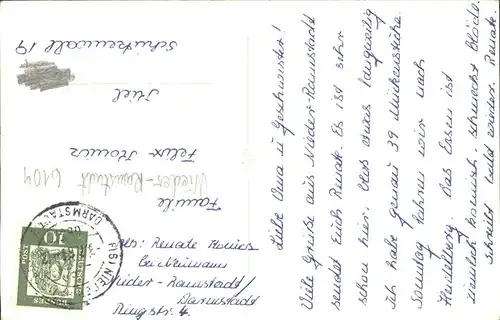 Liebe Oma u. Geschwister!
Viele Grüße aus Nieder-Ramstadt
sendet Euch Renate. Es ist sehr
schön hier. Etwas langweilig
ich habe genau 39 Mückenstiche.
Sonntag fahren wir nach
Heidelberg. Das Essen ist
ziemlich komisch, schmeckt blöde.
Schreibt bald wieder. Renate.
Familie
Felix
Kiel
Schützenwall 19
Nieder-Ramstadt 6104
Abs: Renate
bei
Nieder-Ramstadt/
Darmstadt
Ringstr. 4
(16) NIEDER-
DARMSTADT
10
DEUTSCHE
BUNDESPOST